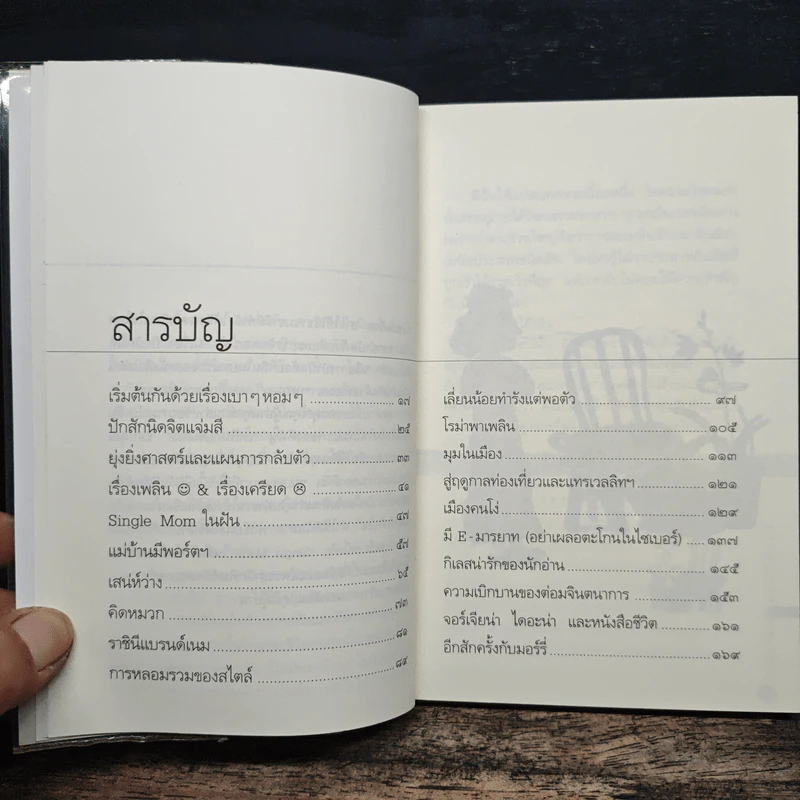 สารบัญ
เริ่มต้นกันด้วยเรื่องเบาๆหอมๆ ๑๗
ปักสักนิดจิตแจ่มสี ๒๕
ยุ่งยิ่งศาสตร์และแผนการกลับตัว ๓๓
เรื่องเพลิน ☺ & เรื่องเครียด ☹ ๔๑
Single Mom ในฝัน ๔๗
แม่บ้านมีพอร์ตฯ ๕๗
เสน่ห์ว่าง ๖๕
คิดหมวก ๗๓
ราชินีแบรนด์เนม ๘๑
การหลอมรวมของสไตล์ ๘๙
เลี่ยนน้อยทำรังแต่พอตัว ๙๗
โรม่าพาเพลิน ๑๐๕
มุมในเมือง ๑๑๓
สู่ฤดูกาลท่องเที่ยวและแทรเวลลิทฯ ๑๒๑
เมืองคนโง่ ๑๒๙
มี E-มารยาท (อย่าเผลอตะโกนในไซเบอร์) ๑๓๗
กิเลสน่ารักของนักอ่าน ๑๔๕
ความเบิกบานของต่อมจินตนาการ ๑๕๓
จอร์เจียน่า ไดอะน่า และหนังสือชีวิต ๑๖๑
อีกสักครั้งกับมอร์รี่ ๑๖๙